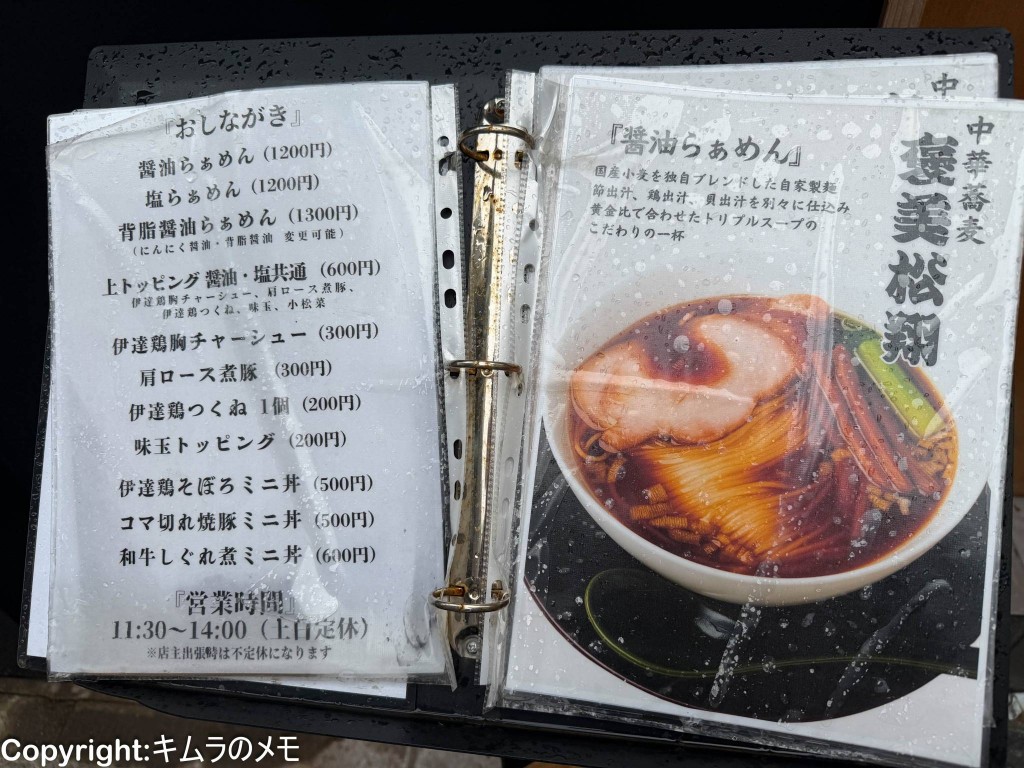 『おしながき』
醤油らぁめん (1200円)
塩らぁめん (1200円)
背脂醤油らぁめん (1300円)
(にんにく醤油・背脂醤油 変更可能)
上トッピング 醤油・塩共通 (600円)
伊達鶏胸チャーシュー、肩ロース煮豚、
伊達鶏つくね、味玉、小松菜
伊達鶏胸チャーシュー (300円)
肩ロース煮豚 (300円)
伊達鶏つくね 1個 (200円)
味玉トッピング (200円)
伊達鶏そぼろミニ丼 (500円)
コマ切れ焼豚ミニ丼 (500円)
和牛しぐれ煮ミニ丼 (600円)
『営業時間』
11:30〜14:00 (土日定休)
※店主出張時は不定休になります
中
中華蕎麦
褒美松翔
『醤油らぁめん』
国産小麦を独自ブレンドした自家製麺
節出汁、鶏出汁、貝出汁を別々に仕込み
黄金比で合わせたトリプルスープの
こだわりの一杯
Copyright:キムラのメモ